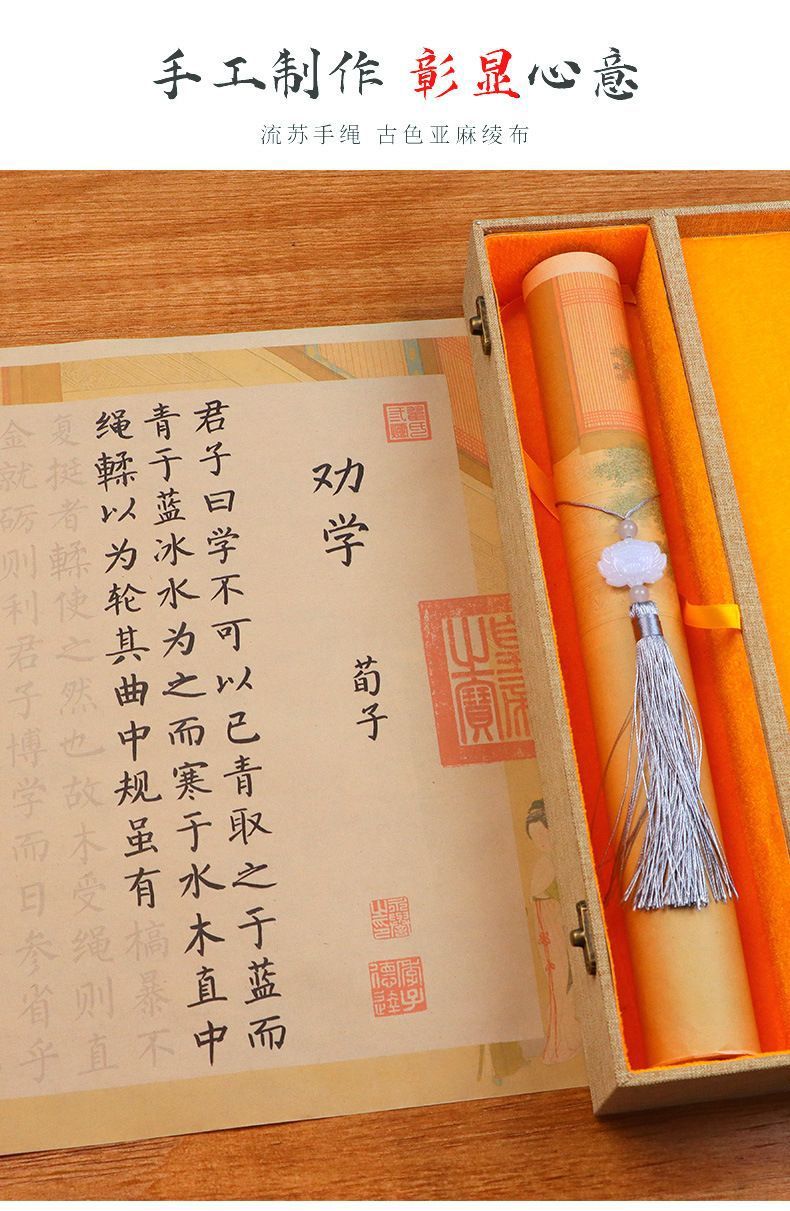 手工制作 彰显心意
流苏手绳 古色亚麻绫布
劝学
荀子
君子曰学不可以已青取之于蓝而
青于蓝冰水为之而寒于水木直中
绳輮以为轮其曲中规虽有槁暴不
复挺者輮使之然也故木受绳则直
金就砺则利君子博学而日参省乎
之寶